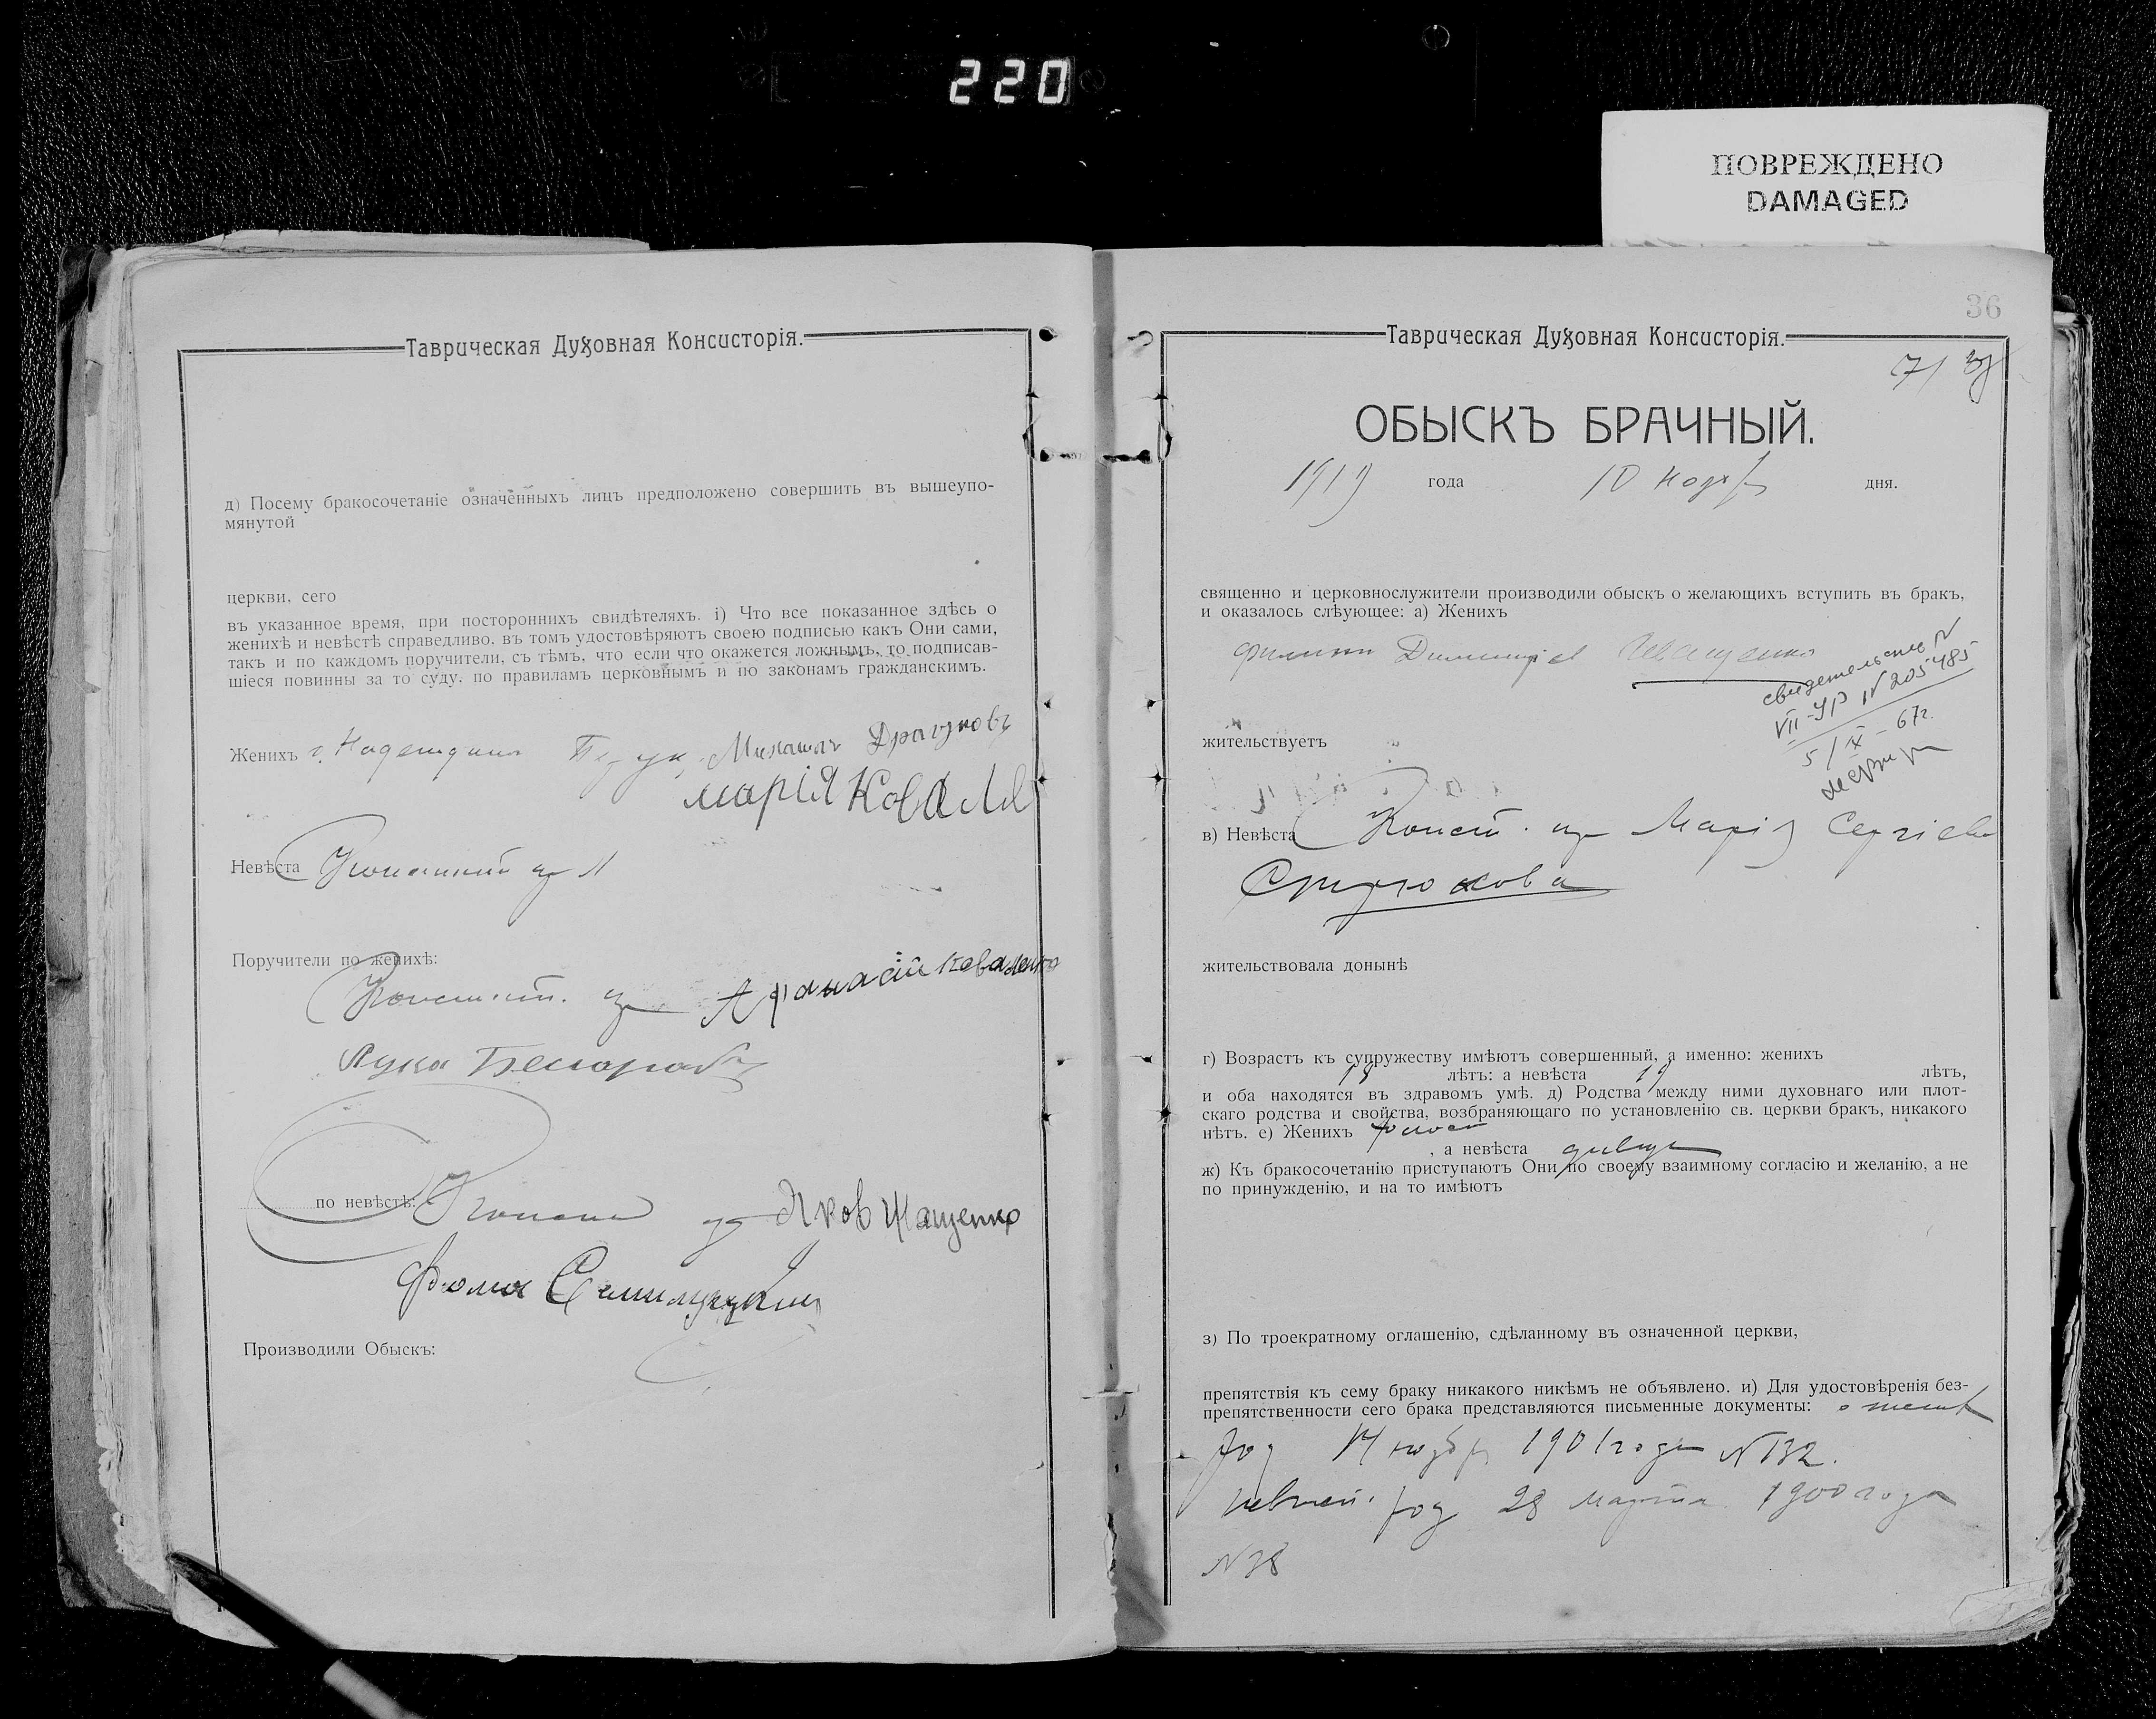 220
ПОВРЕЖДЕНО
DAMAGED
Таврическая Духовная Консисторія.
д) Посему бракосочетаніе означенныхъ лицъ предположено совершить въ вышеупо-
мянутой
церкви, сего
въ указанное время, при постороннихъ свидѣтеляхъ. і) Что все показанное здѣсь о
женихѣ и невѣстѣ справедливо, въ томъ удостовѣряютъ своею подписью какъ Они сами,
такъ и по каждомъ поручители, съ тѣмъ, что если что окажется ложнымъ, то подписав-
шіеся повинны за то суду, по правиламъ церковнымъ и по законамъ гражданскимъ.
Женихъ Михаилъ Драгуновъ
марія Коваль
Невѣста
Поручители по женихѣ:
Афанасій Коваленко
Лука
по невѣстѣ: Яков Иащенко
Фома
Производили Обыскъ:
36
Таврическая Духовная Консисторія.
ОБЫСКЪ БРАЧНЫЙ.
1919 года 10 ноября дня.
священно и церковнослужители производили обыскъ о желающихъ вступить въ бракъ,
и оказалось слѣующее: а) Женихъ
Филипп Димитріев Иващенко
свидетельство
VII-УР №205485
5/IX-67г.
жительствуетъ
в) Невѣста Конст. Марія Сергіева
жительствовала донынѣ
г) Возрастъ къ супружеству имѣютъ совершенный, а именно: женихъ
18 лѣтъ: а невѣста 19 лѣтъ,
и оба находятся въ здравомъ умѣ. д) Родства между ними духовнаго или плот-
скаго родства и свойства, возбраняющаго по установленію св. церкви бракъ, никакого
нѣтъ. е) Женихъ холост
, а невѣста девица
ж) Къ бракосочетанію приступаютъ Они по своему взаимному согласію и желанію, а не
по принужденію, и на то имѣютъ
з) По троекратному оглашенію, сдѣланному въ означенной церкви,
препятствія къ сему браку никакого никѣмъ не объявлено. и) Для удостовѣренія без-
препятственности сего брака представляются письменные документы:
род 14 ноября 1901 года №132.
невѣст. род 28 марта 1900 года
№38